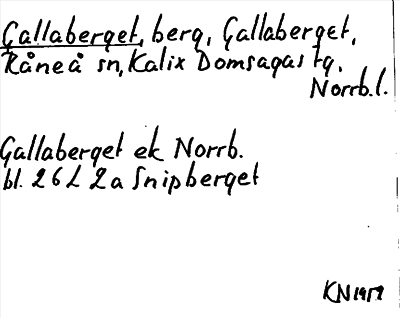 Gallaberget, berg, Gallaberget,
Råneå sn, Kalix Domsagas tg.
Norrb.l.
Gallaberget ek Norrb.
bl. 26L 2a Snipberget
KN 1959